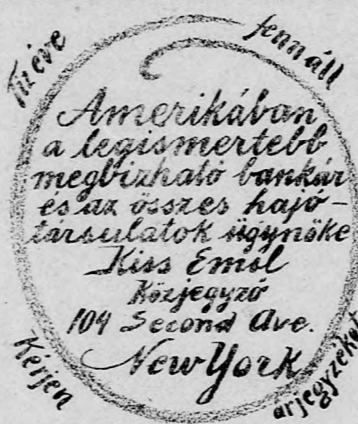 Tíz éve
fennáll
Amerikában
a legismertebb
megbizható bankár
és az összes hajó-
társulatok ügynöke
Kiss Emil
Közjegyző
104 Second Ave.
New York
Kérjen
árjegyzéket